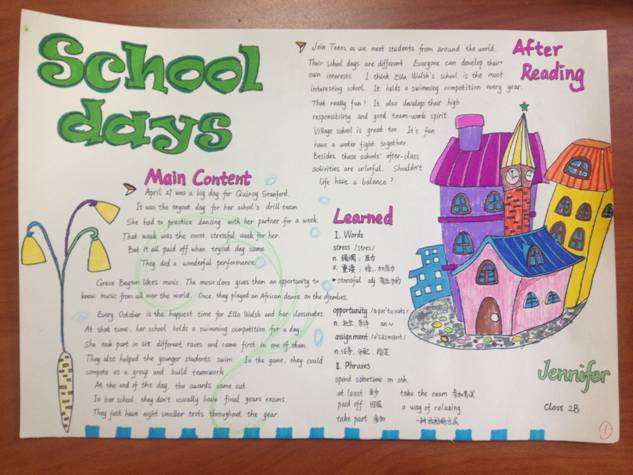 School
days
Main Content
April 27 was a big day for Quincy Stanford.
It was the tryout day for her school's drill team.
She had to practice dancing with her partner for a week.
That week was the most stressful week for her.
But it all paid off when tryout day came.
They did a wonderful performance.
Grece Bagton likes music. The music class gives them an opportunity to
know music from all over the world. Once, they played an African dance on the djembes.
Every October is the happiest time for Ella Walsh and her classmates.
At that time, her school holds a swimming competition for a day.
She took part in six different races and came first in one of them.
They also helped the younger students swim. In the game, they could
compete as a group and build teamwork.
At the end of the day, the awards came out.
In her school, they don't usually have final years exams.
They just have eight smaller tests throughout the year.
After
Reading
Join Teens as we meet students from around the world.
Their school days are different. Everyone can develop their
own interests. I think Ella Walsh's school is the most
interesting school. It holds a swimming competition every year.
That really fun! It also develop their high
responsibility and good team-work spirit.
Village school is great too. It's fun
have a water fight together.
Besides, these schools' after-class
activities are colorful. Shouldn't
life have a balance?
Learned
I. Words
stress /stres/
n. 强调; 压力
v. 重读;
stressful adj.
opportunity
n. 机会
assignment
n. 任务, 分配, 指定
II. Phrases
spend sometime on sth
at least 至少
take the exam 参加考试
paid off 回报
a way of relaxing
take part 参加
一种放松的方式
Jennifer
Class 2B
1